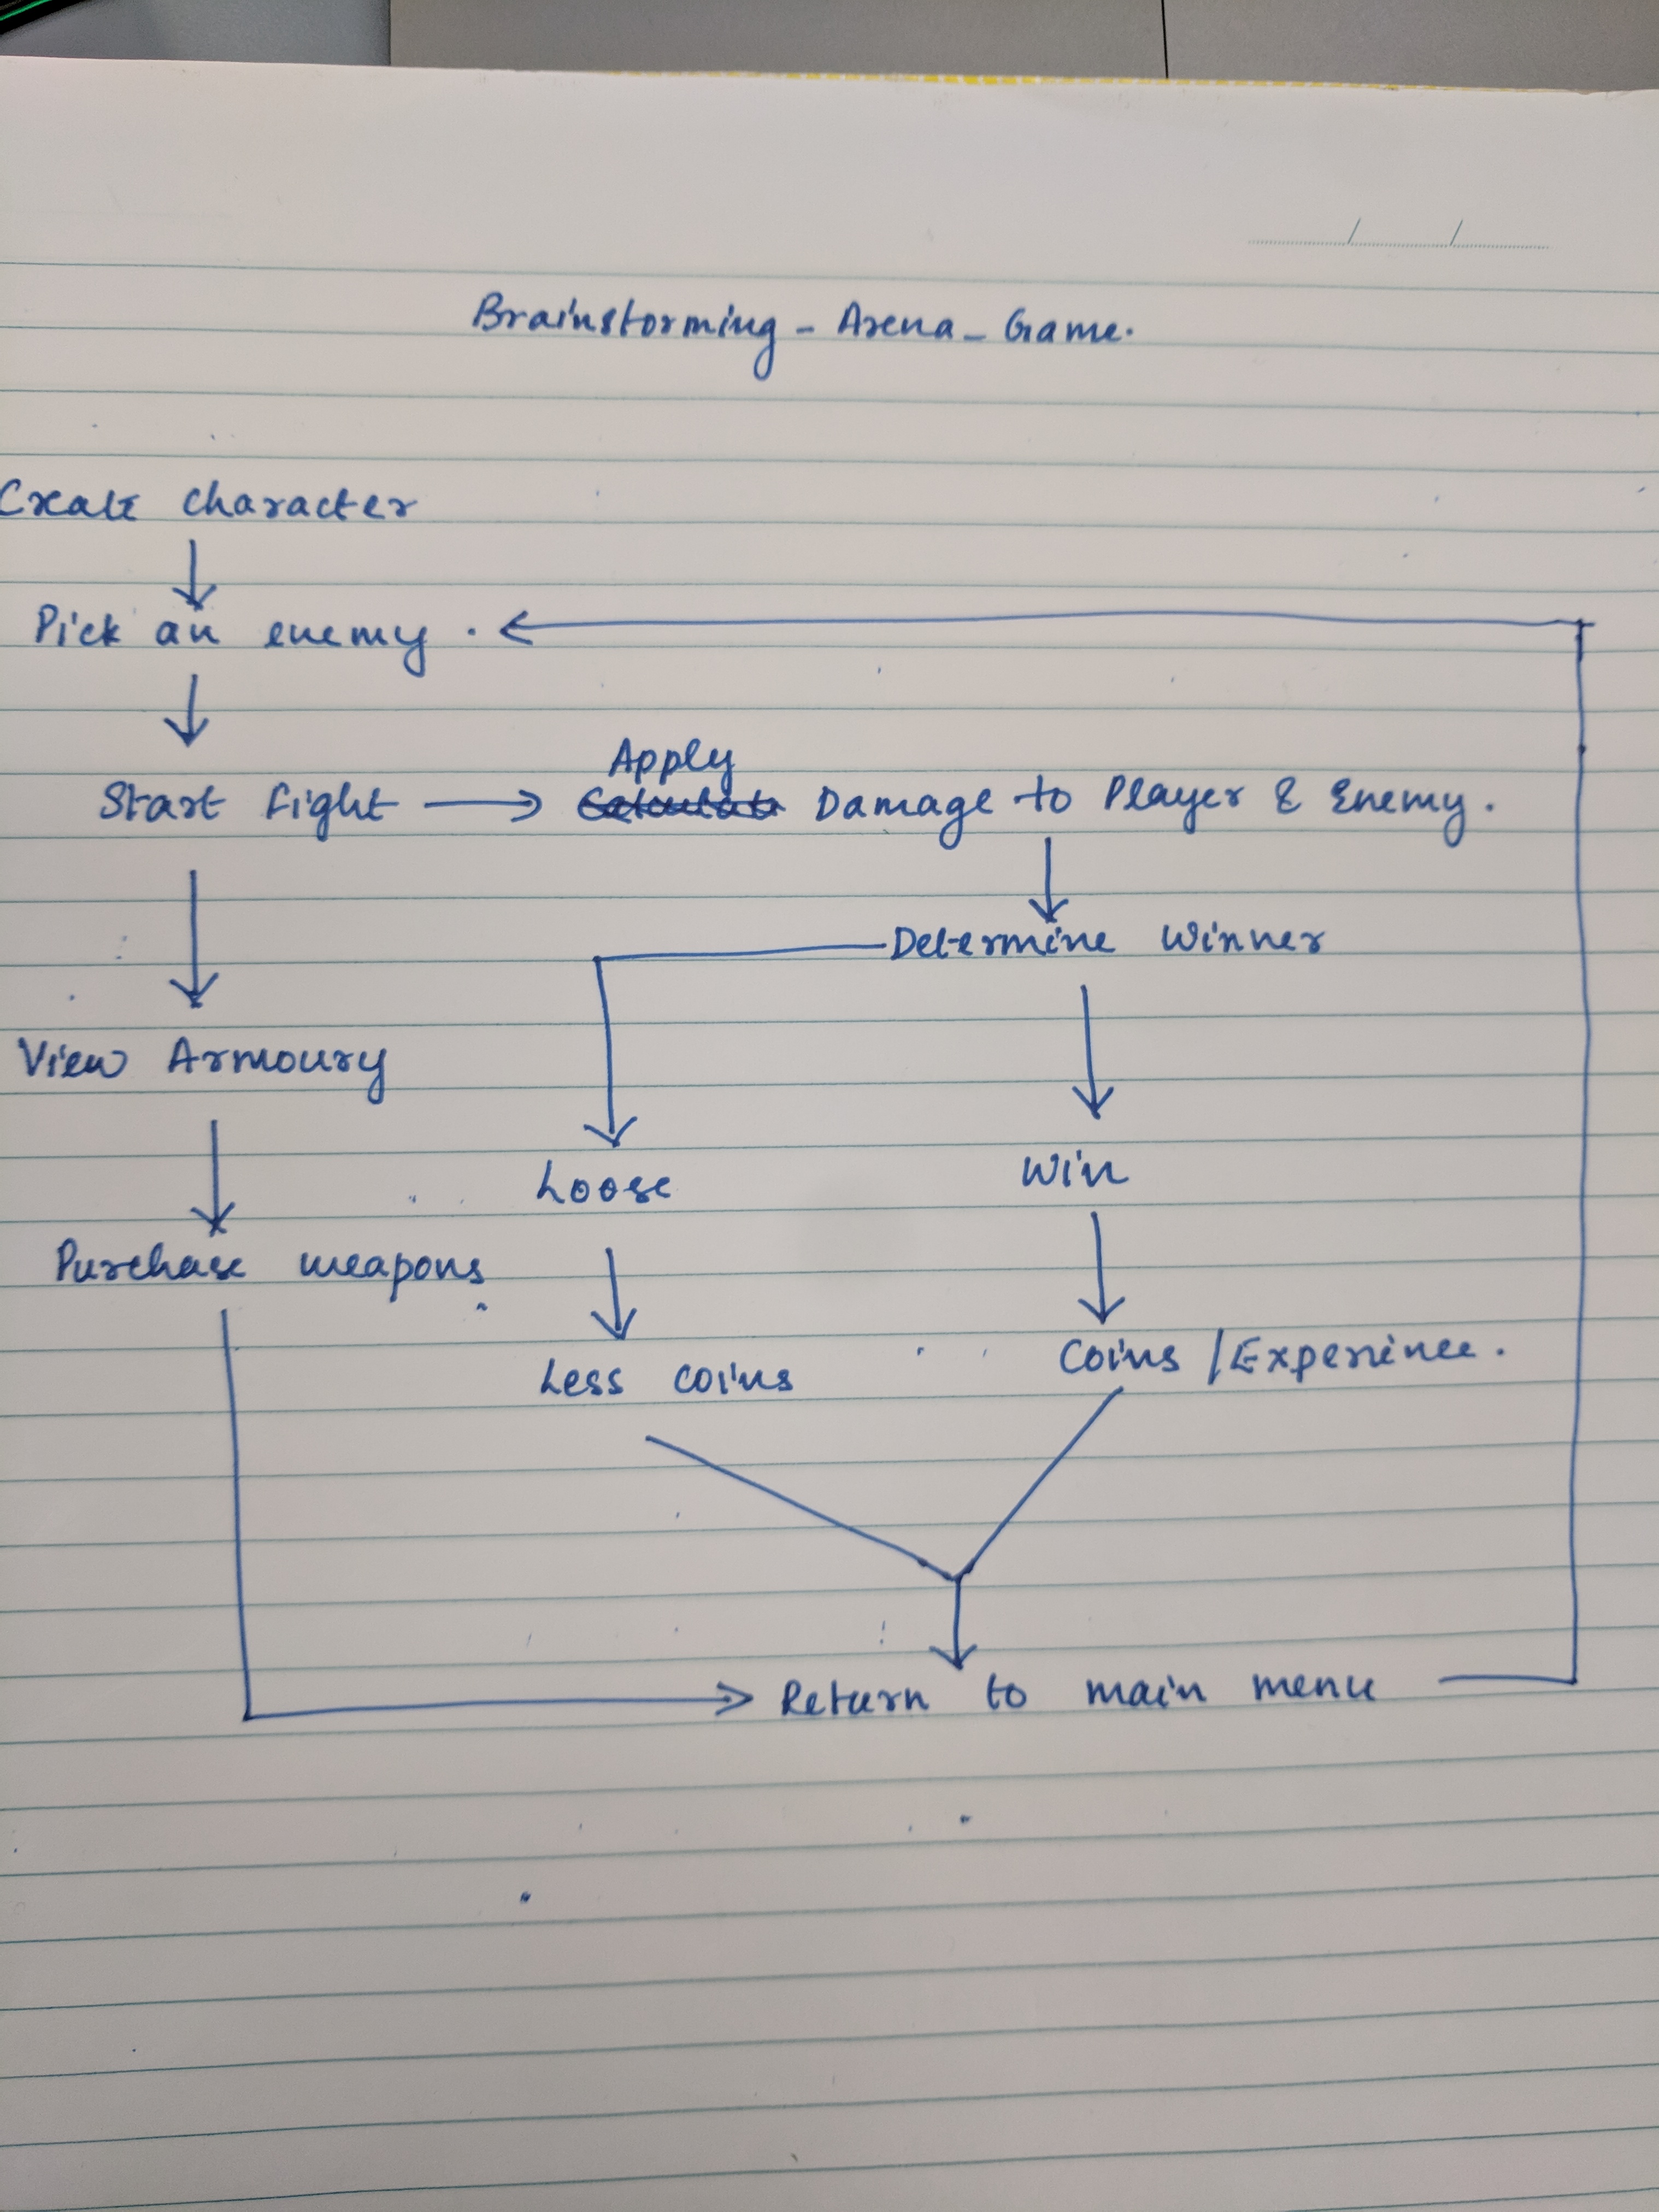 Brainstorming - Arena - Game.
Create character
Pick an enemy.
Apply
Start fight → Calculate Damage to Player & Enemy.
Determine Winner
View Armoury
Loose
Win
Purchase weapons
Less coins
Coins / Experience.
Return to main menu